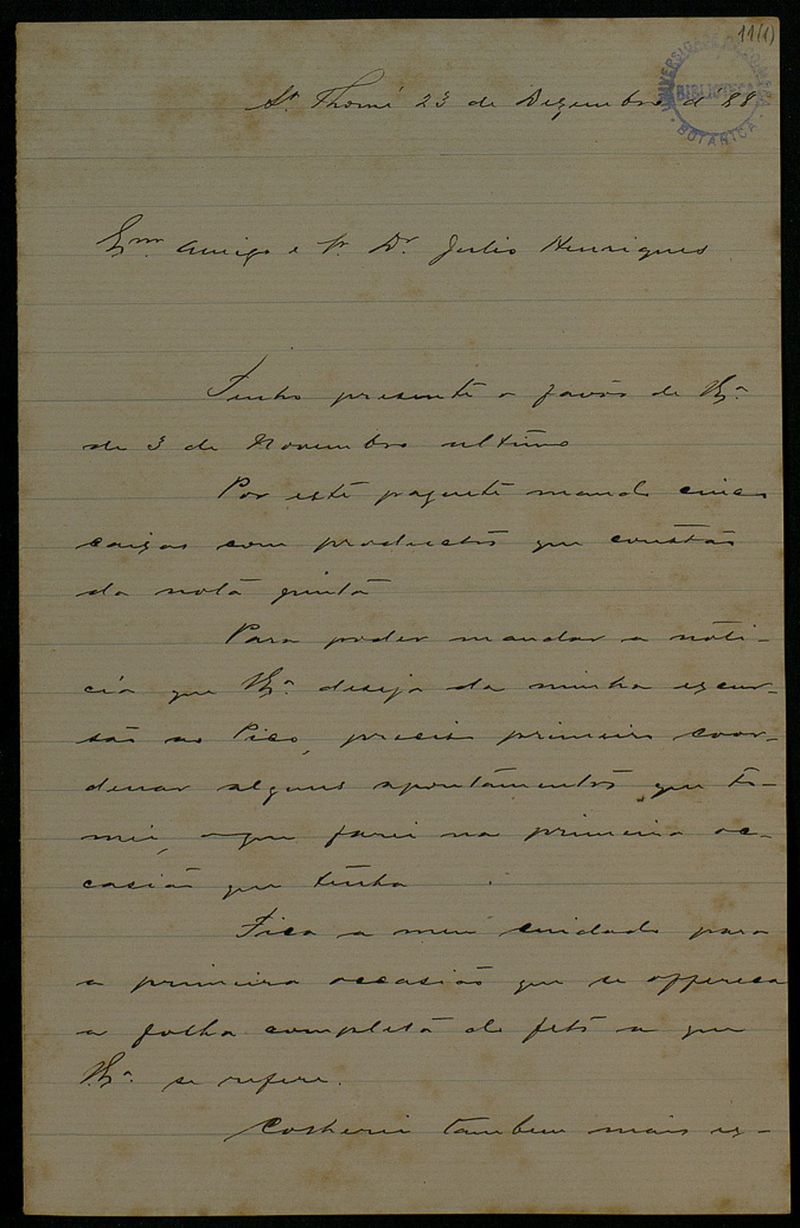 11(1)
UNIVERSIDADE DE COIMBRA
BIBLIOTECA
BOTANICA
S. Thomé 23 de Dezembro d' 88
Exmo. Amigo e Sr. Dr. Julio Henriques
Tenho presente o favor de V. Exa.
de 3 de Novembro ultimo
Por este paquete mando cinco
caixas com productos que constão
da nota junta
Para poder mandar a noti-
cia que V. Exa. deseja da minha excur-
são ao Pico, preciso primeiro coor-
denar alguns apontamentos que to-
mei, o que farei na primeira oc-
casião que tenha
Fica a meu cuidado para
a primeira occasião que se offereca
a folha completa do feto a que
V. Exa. se refere.
Colherei tambem mais ex-